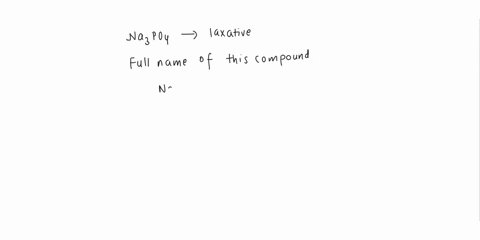 Na3PO4 → laxative
Full name of this compound
Na